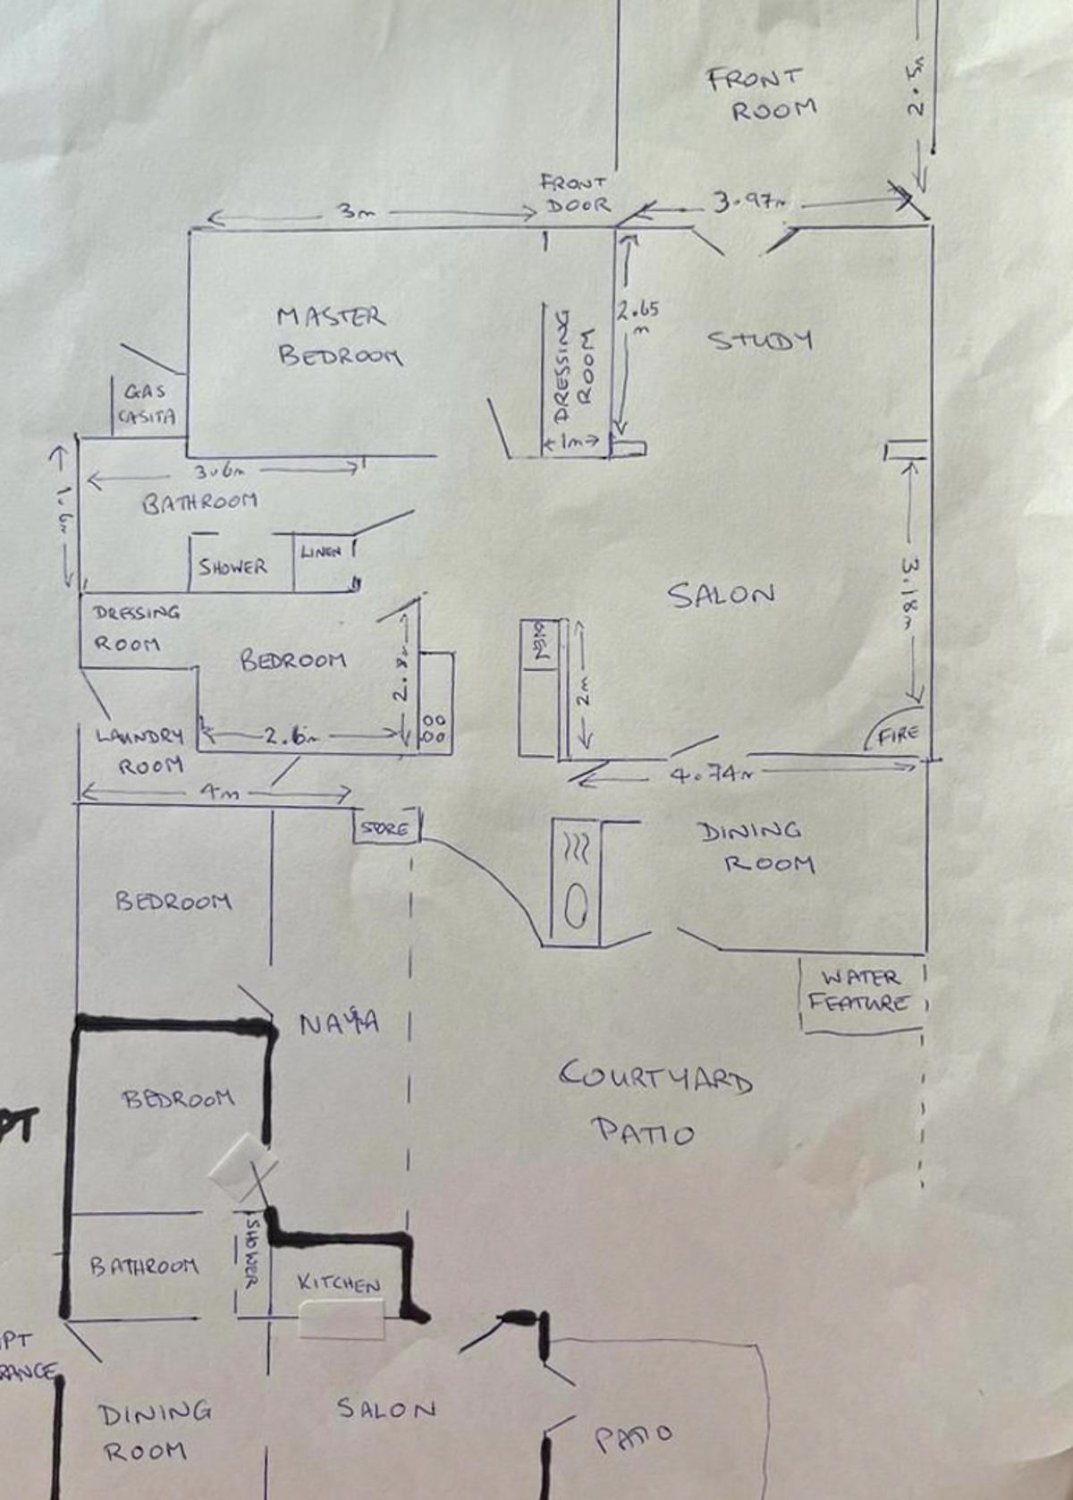 FRONT
ROOM
2.5m
FRONT
DOOR
3m
3.97m
MASTER
BEDROOM
DRESSING
ROOM
2.65
m
STUDY
GAS
CASITA
1m
3.6m
BATHROOM
1.6m
SHOWER
LINEN
3.18m
SALON
DRESSING
ROOM
BEDROOM
2.8m
2m
2.6m
FIRE
LAUNDRY
ROOM
4m
4.74m
STORE
DINING
ROOM
BEDROOM
WATER
FEATURE
NAYA
COURTYARD
PATIO
BEDROOM
PT
SHOWER
BATHROOM
KITCHEN
PT
RANCE
DINING
ROOM
SALON
PATIO